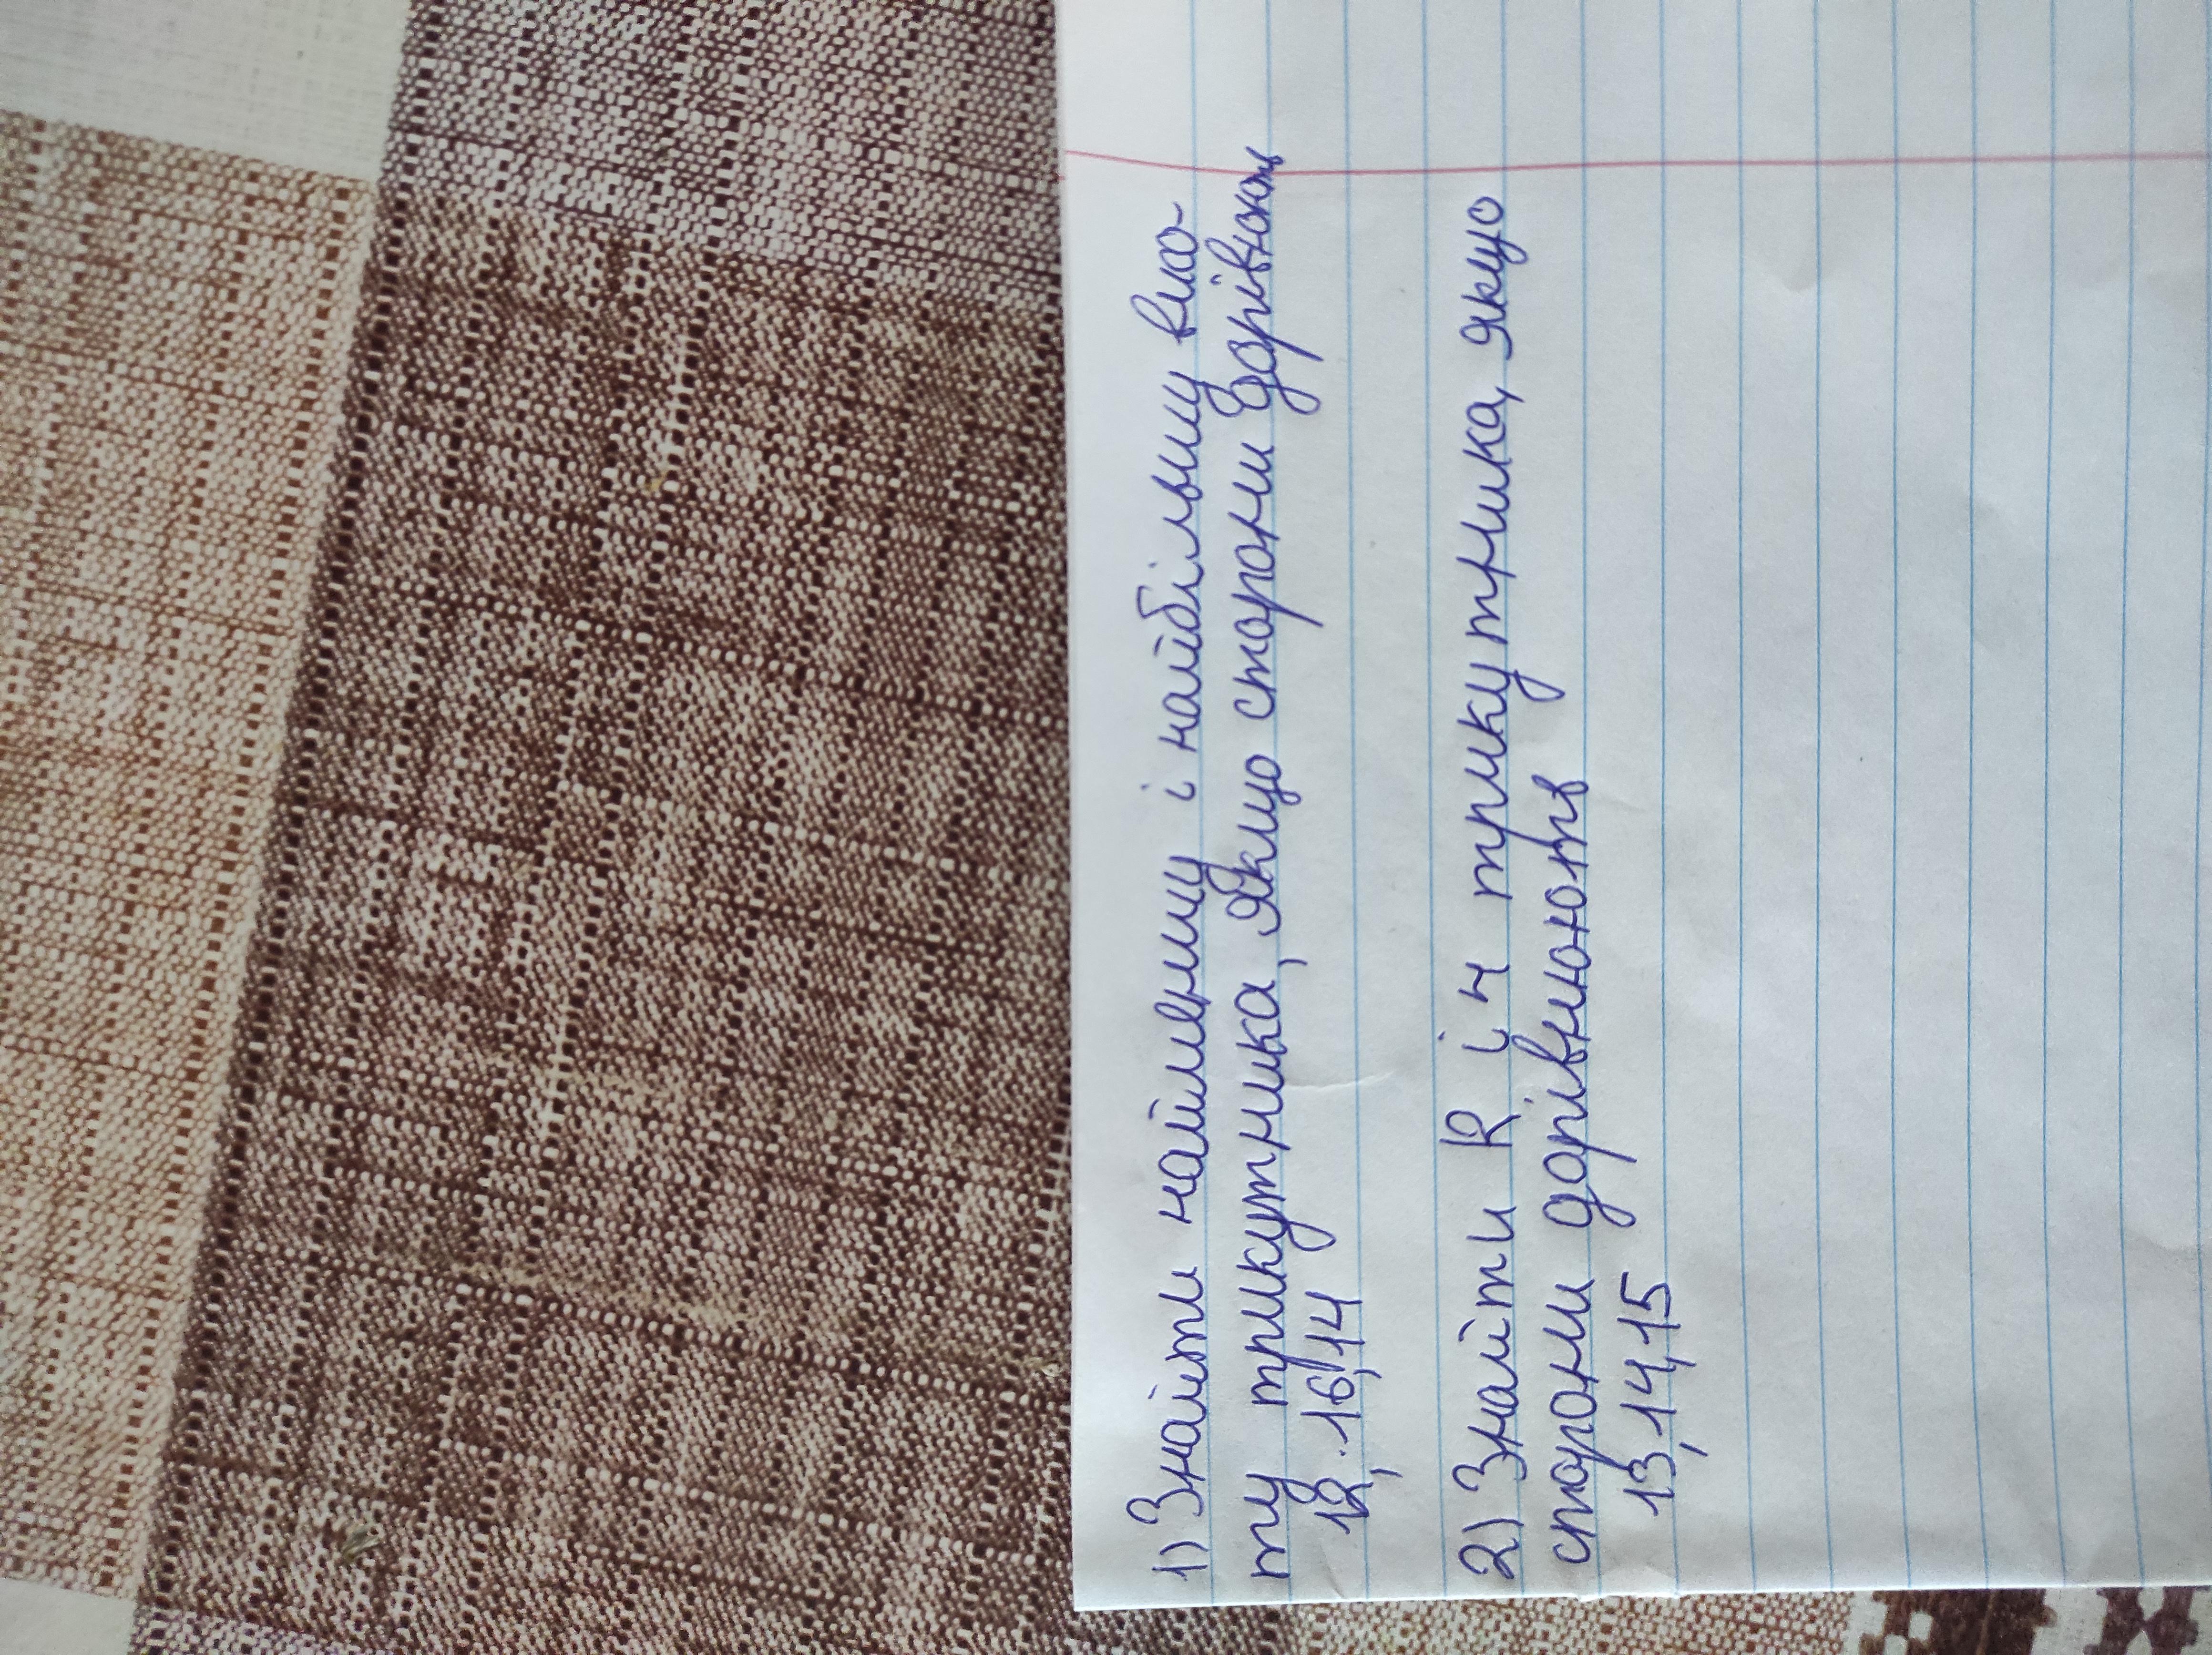 1) Знайти найменшу і найбільшу висо-
ту трикутника, якщо сторони дорівнюють
12, 16, 14
2) Знайти R і r трикутника, якщо
сторони дорівнюють
13, 14, 15